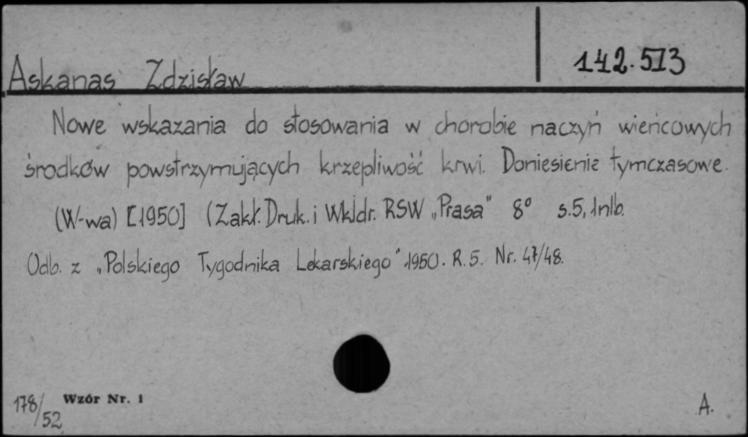 142.513
Askanas Zdzisław
Nowe wskazania do stosowania w chorobie naczyń wieńcowych
środków powstrzymujących krzepliwość krwi. Doniesienie tymczasowe.
(W-wa) [1950] (Zakł. Druk. i Wkldr. RSW „Prasa" 8° s.5, 1nlb.
Odb. z „Polskiego Tygodnika Lekarskiego" 1950. R. 5. Nr. 47/48.
178/52 Wzór Nr. 1 A.